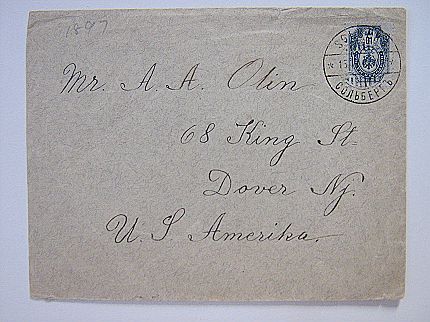 1897
СОЛЬБЕРГЪ
Mr. A. A. Olin
68 King St.
Dover Nj.
U. S. Amerika.